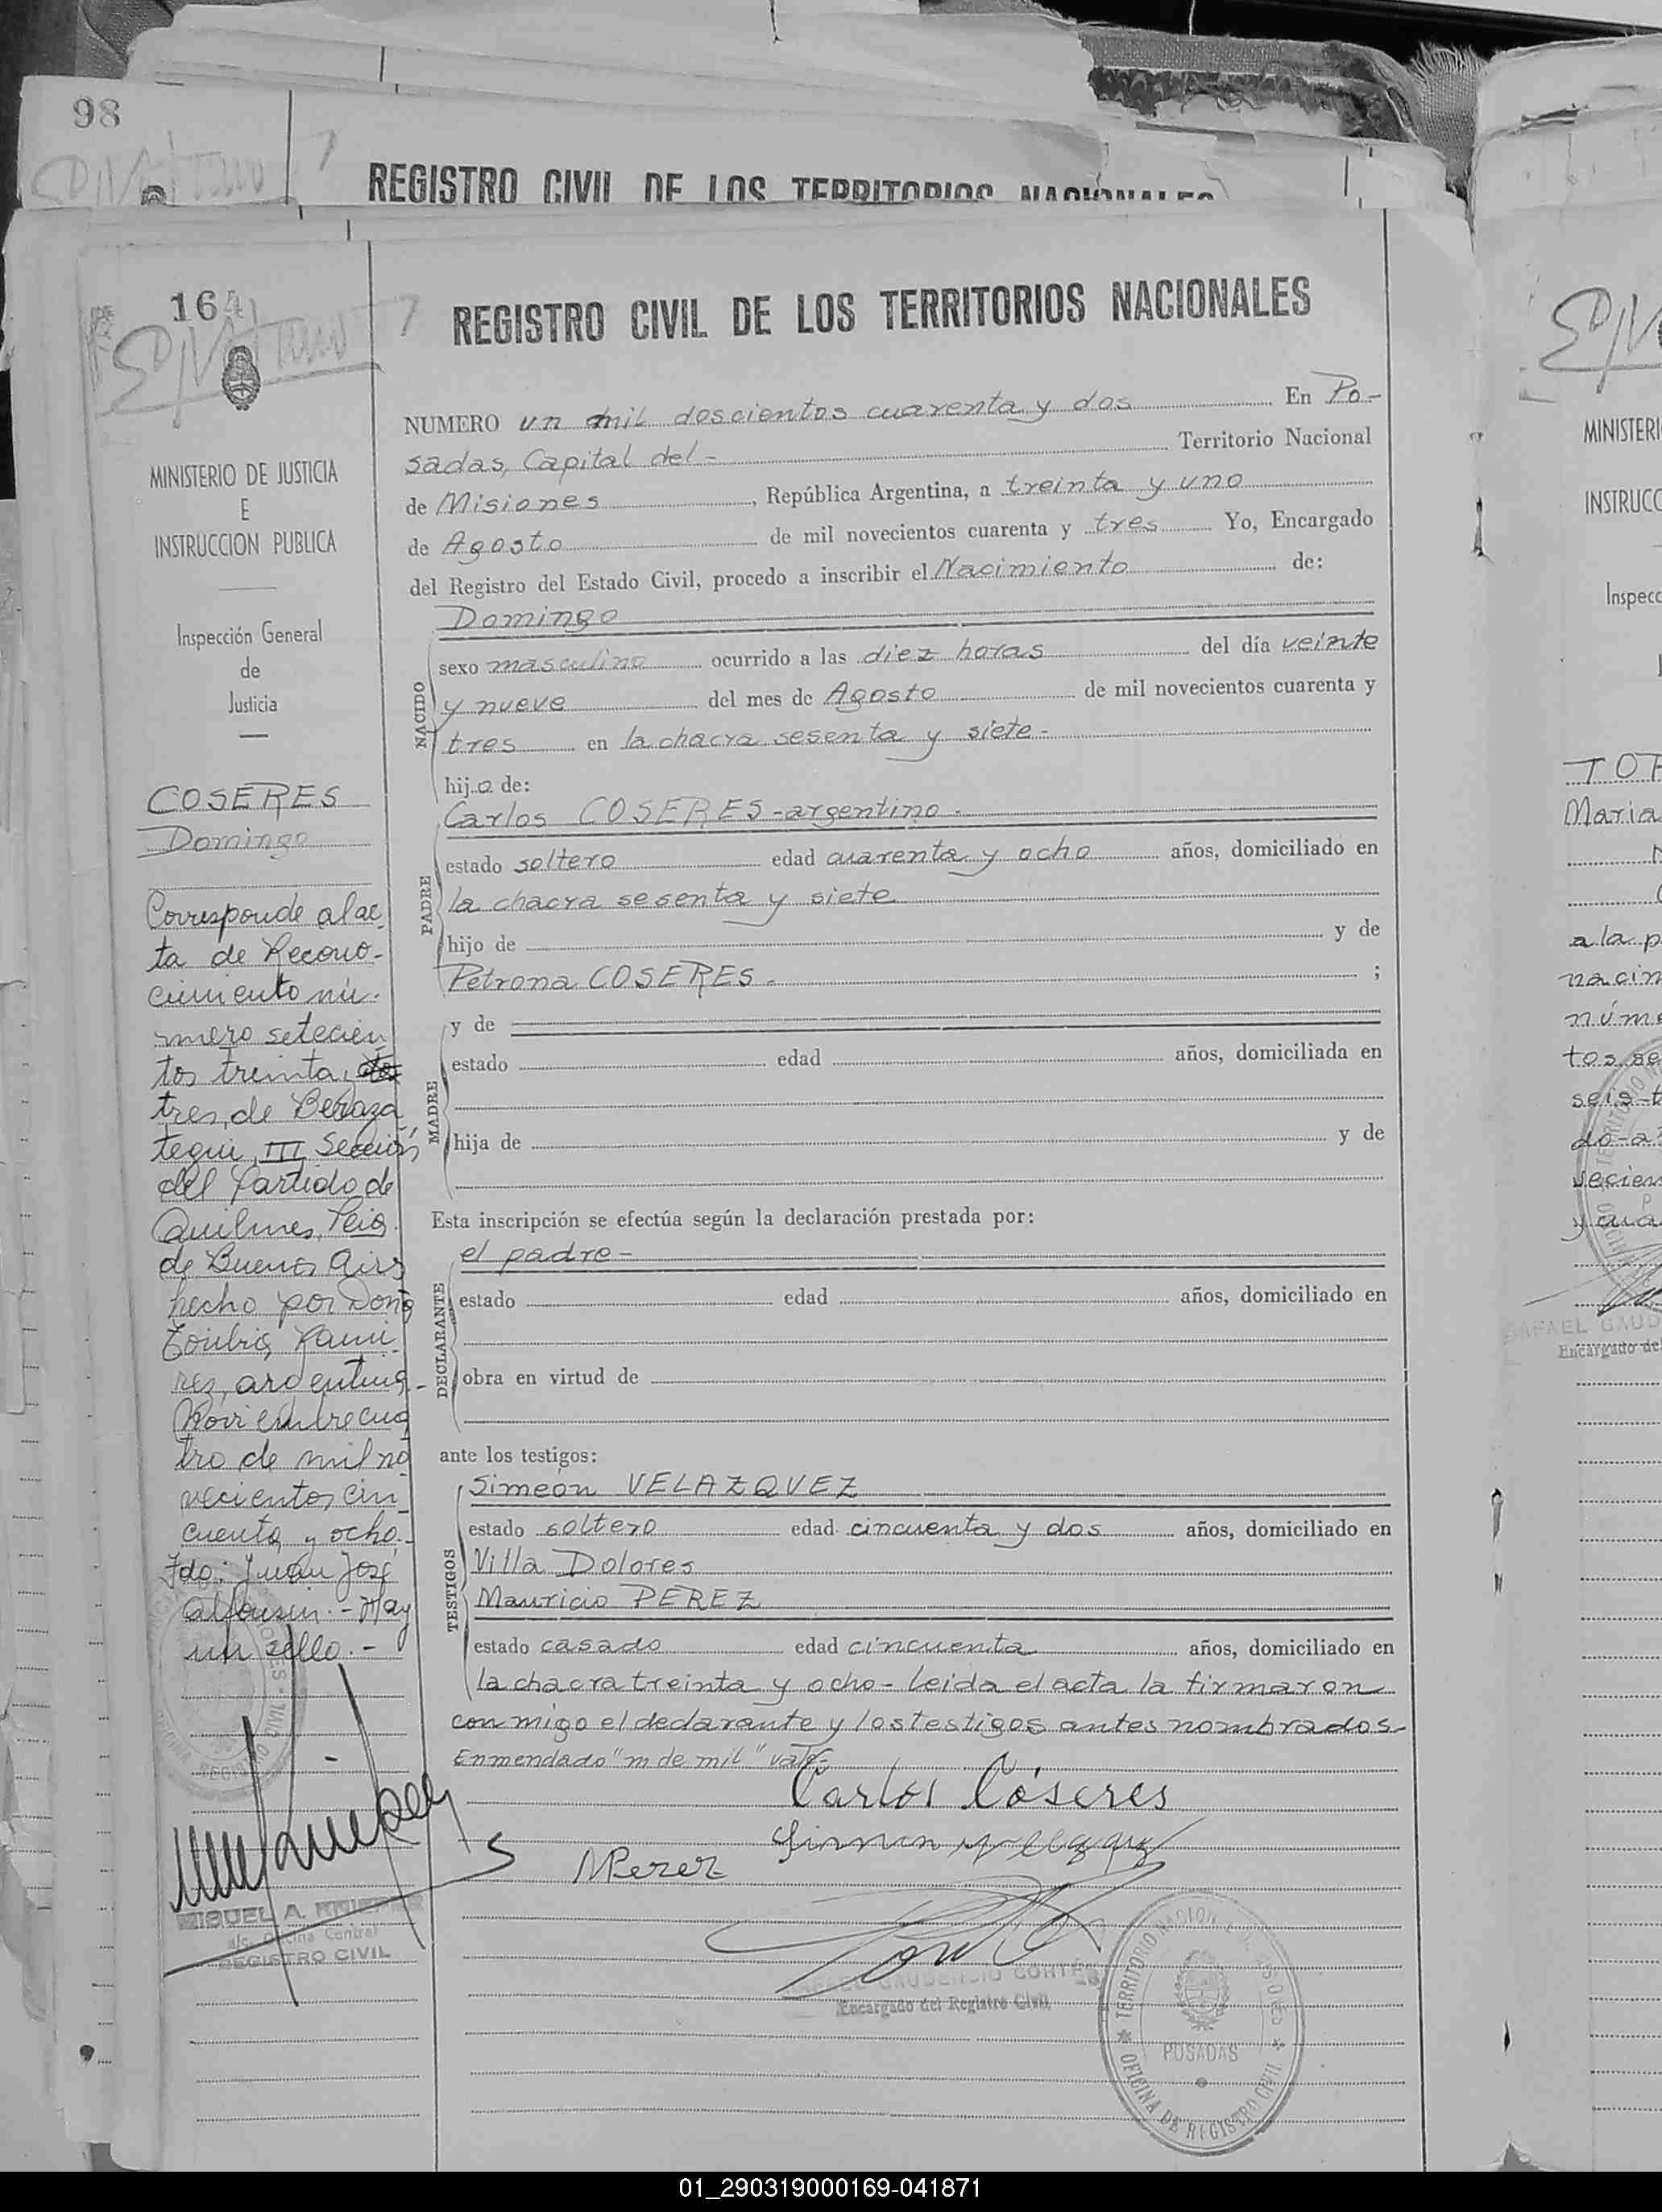 98
REGISTRO CIVIL DE LOS TERRITORIOS NACIONALES
164
MINISTERIO DE JUSTICIA
E
INSTRUCCION PUBLICA
Inspección General
de
Justicia
COSERES
Domingo
Corresponde al ac
ta de Recono-
cimiento nú-
mero setecien
tos treinta
tres, de Beraza
tegui, III Sección
del Partido de
Quilmes, Pcia.
de Buenos Aires
hecho por Doña
Toribia Rami-
rez, argentina.-
Noviembre cua
tro de mil no
vecientos cin
cuenta y ocho.-
Fdo: Juan José
Alfonsin.- Hay
un sello.-
MIGUEL A.
a/c. Oficina Central
REGISTRO CIVIL
REGISTRO CIVIL DE LOS TERRITORIOS NACIONALES
NUMERO un mil doscientos cuarenta y dos En Po-
sadas, Capital del- Territorio Nacional
de Misiones, República Argentina, a treinta y uno
de Agosto de mil novecientos cuarenta y tres Yo, Encargado
del Registro del Estado Civil, procedo a inscribir el Nacimiento de:
NACIDO
Domingo
sexo masculino ocurrido a las diez horas del día veinte
y nueve del mes de Agosto de mil novecientos cuarenta y
tres en la chacra sesenta y siete-
hijo de:
PADRE
Carlos COSERES-argentino-
estado soltero edad cuarenta y ocho años, domiciliado en
la chacra sesenta y siete
hijo de y de
Petrona COSERES- ;
MADRE
y de
estado edad años, domiciliada en
hija de y de
Esta inscripción se efectúa según la declaración prestada por:
DECLARANTE
el padre-
estado edad años, domiciliado en
obra en virtud de
ante los testigos:
TESTIGOS
Simeón VELAZQUEZ
estado soltero edad cincuenta y dos años, domiciliado en
Villa Dolores
Mauricio PEREZ
estado casado edad cincuenta años, domiciliado en
la chacra treinta y ocho- Leida el acta la firmaron
conmigo el declarante y los testigos antes nombrados-
Enmendado "m de mil" vale-
Carlos Cóseres
MPerez
RAFAEL GAUDENCIO CORTES
Encargado del Registro Civil
TERRITORIO NACIONAL DE MISIONES
POSADAS
OFICINA DE REGISTRO CIVIL
MINISTERI
INSTRUCC
Inspecc
TOR
Maria
a la p
nacim
núme
tos se
seis-t
do-a
vecien
y cua
RAFAEL GAUD
Encargado del
01_290319000169-041871